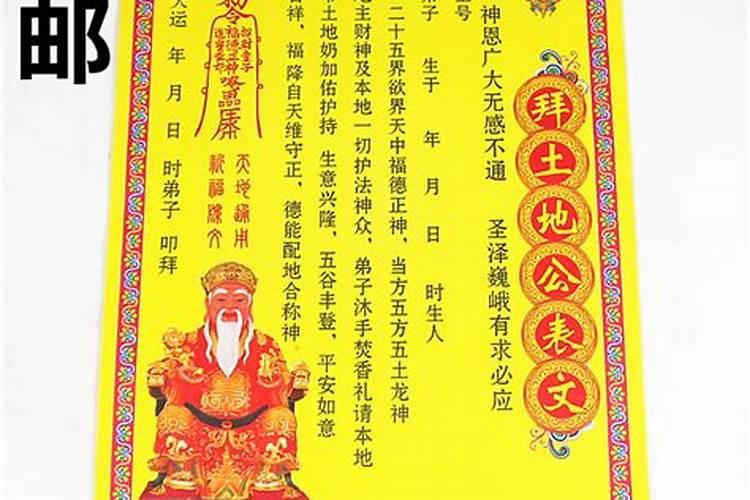 拜土地公表文
神恩广大无感不通 圣泽巍峨有求必应
弟子 生于 年 月 日 时生人
二十五界欲界天中福德正神，当方五方五土龙神
地主财神及本地一切护法神众，弟子沐手焚香礼请本地
土地奶加佑护持 生意兴隆，五谷丰登，平安如意
吉祥，福降自天维守正，德能配地合称神。
天运 年 月 日 时弟子 叩拜
邮